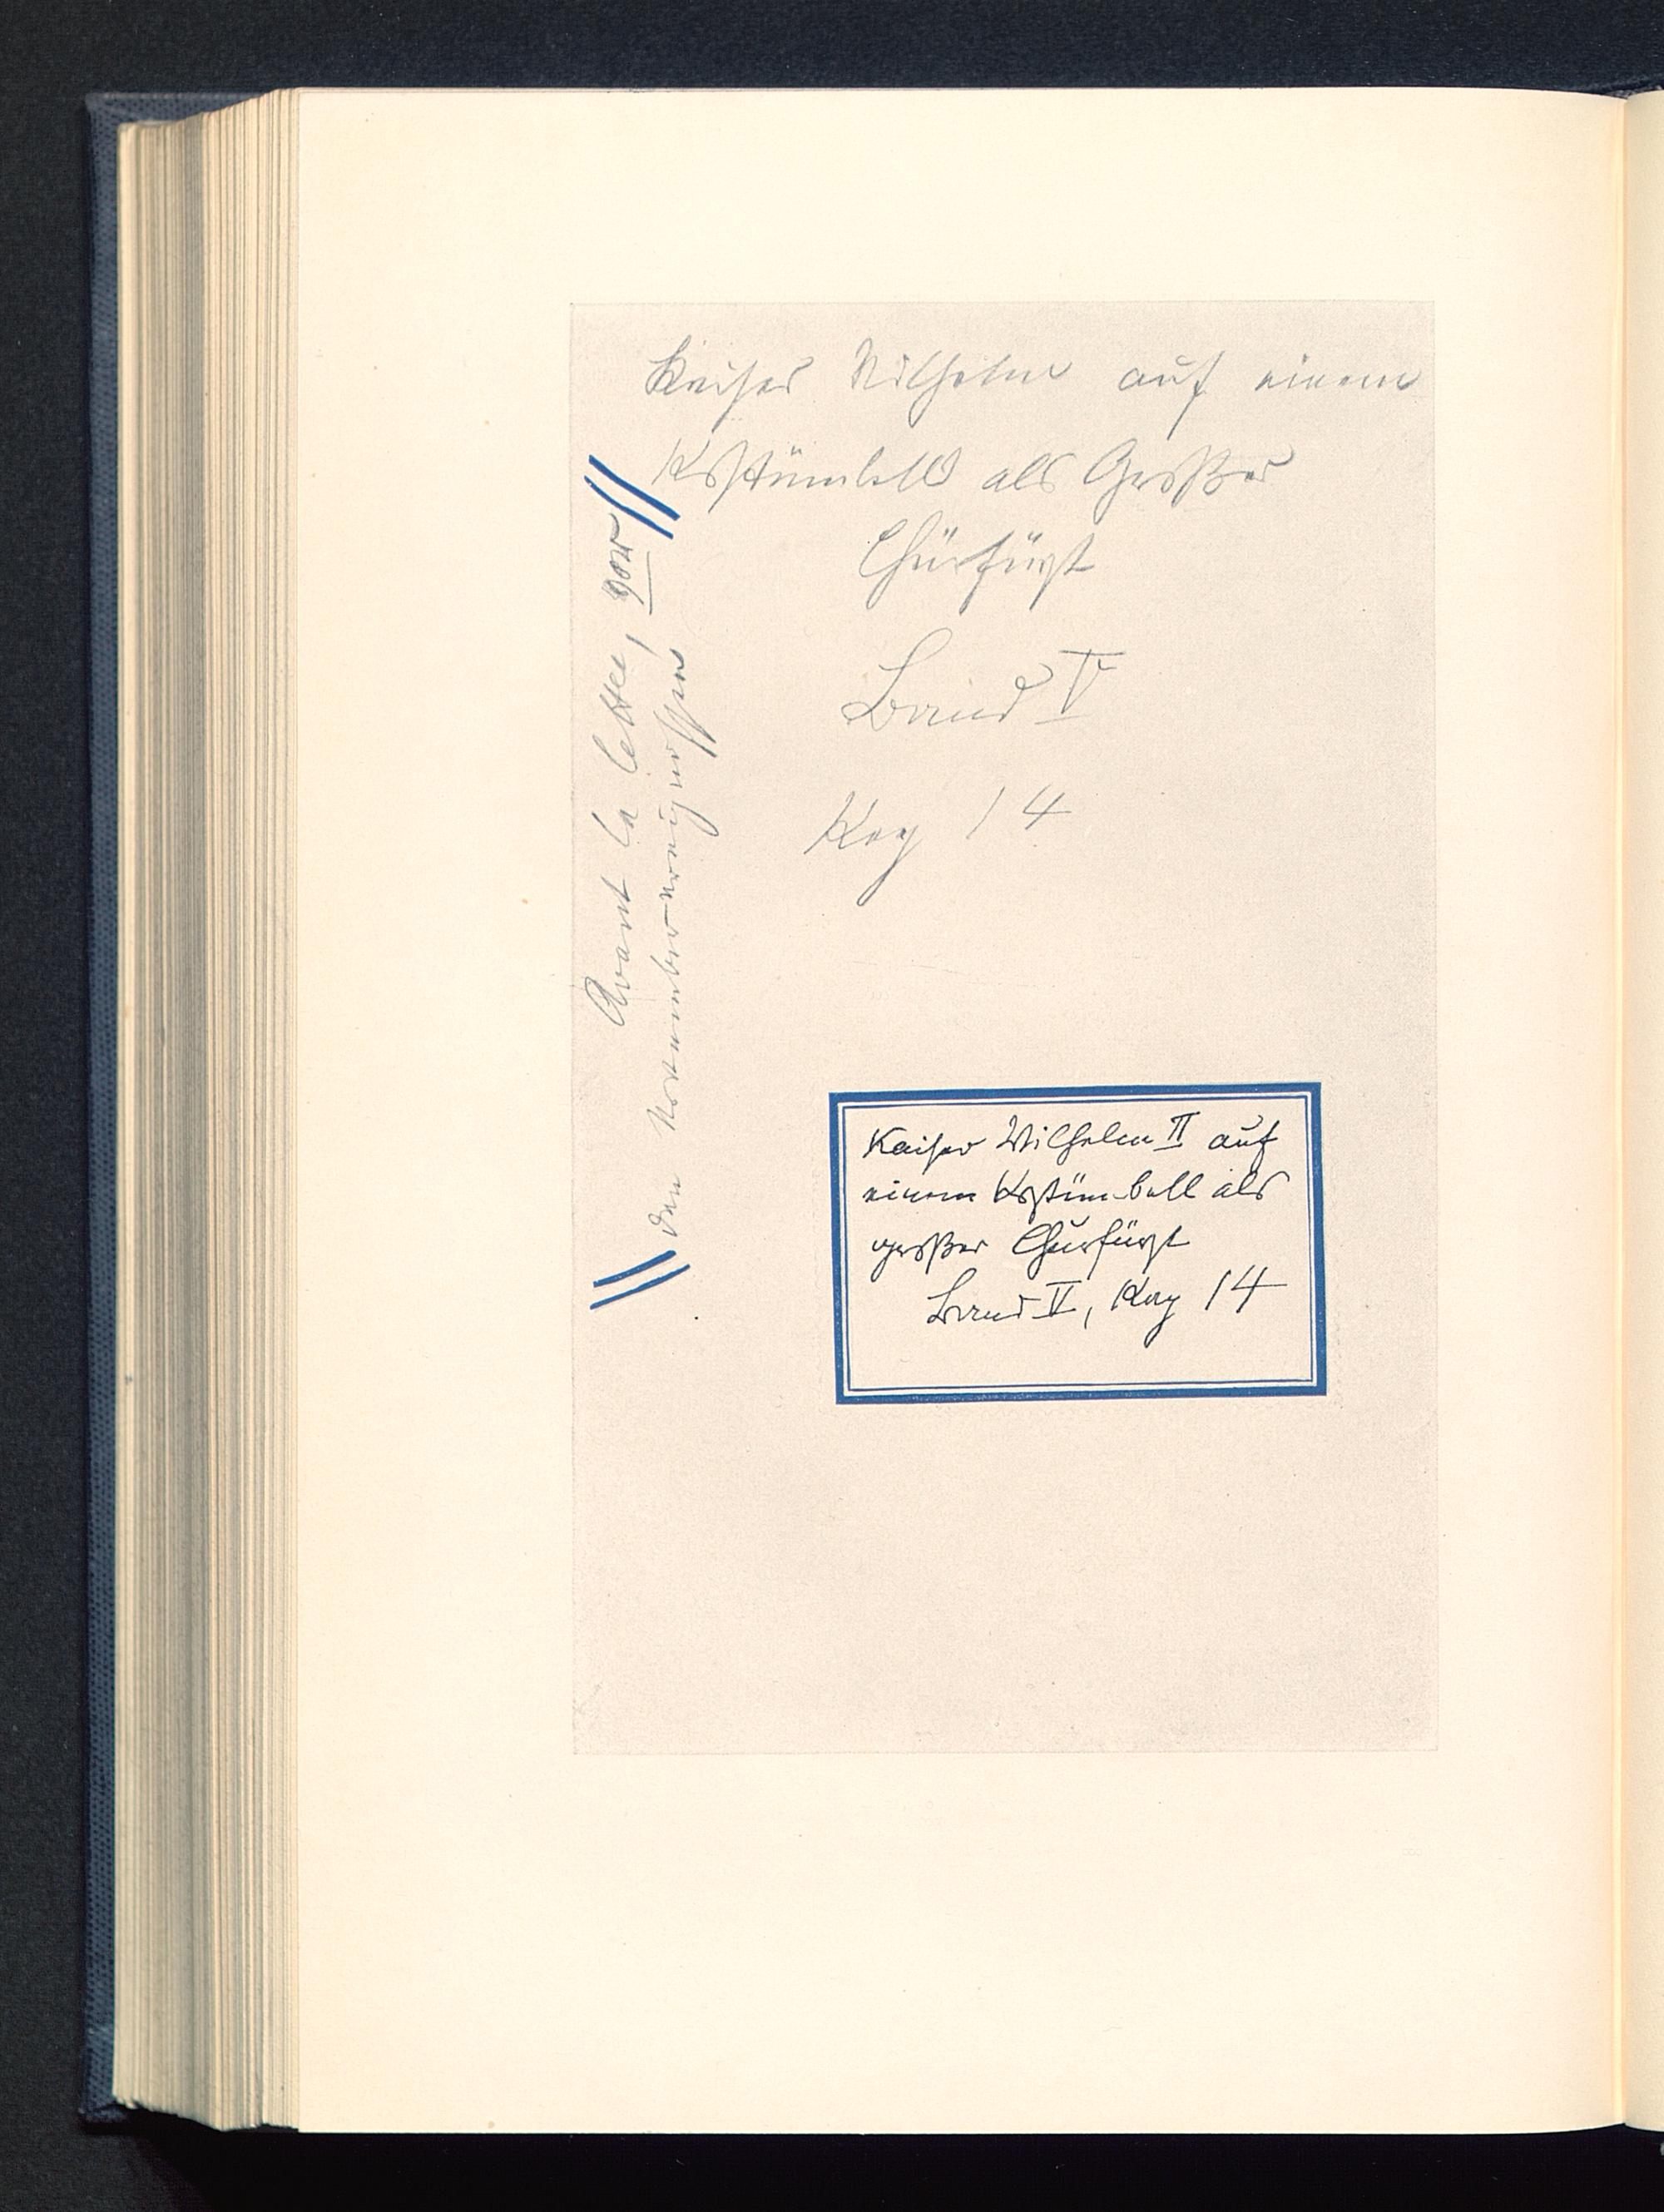 Kaiser Wilhelm auf einem
Kostümball als Großer
Churfürst
Band V
Kap 14
Avant la lettre, vor
den Novemberereignissen
Kaiser Wilhelm II auf
einem Kostümball als
großer Churfürst
Band V, Kap 14